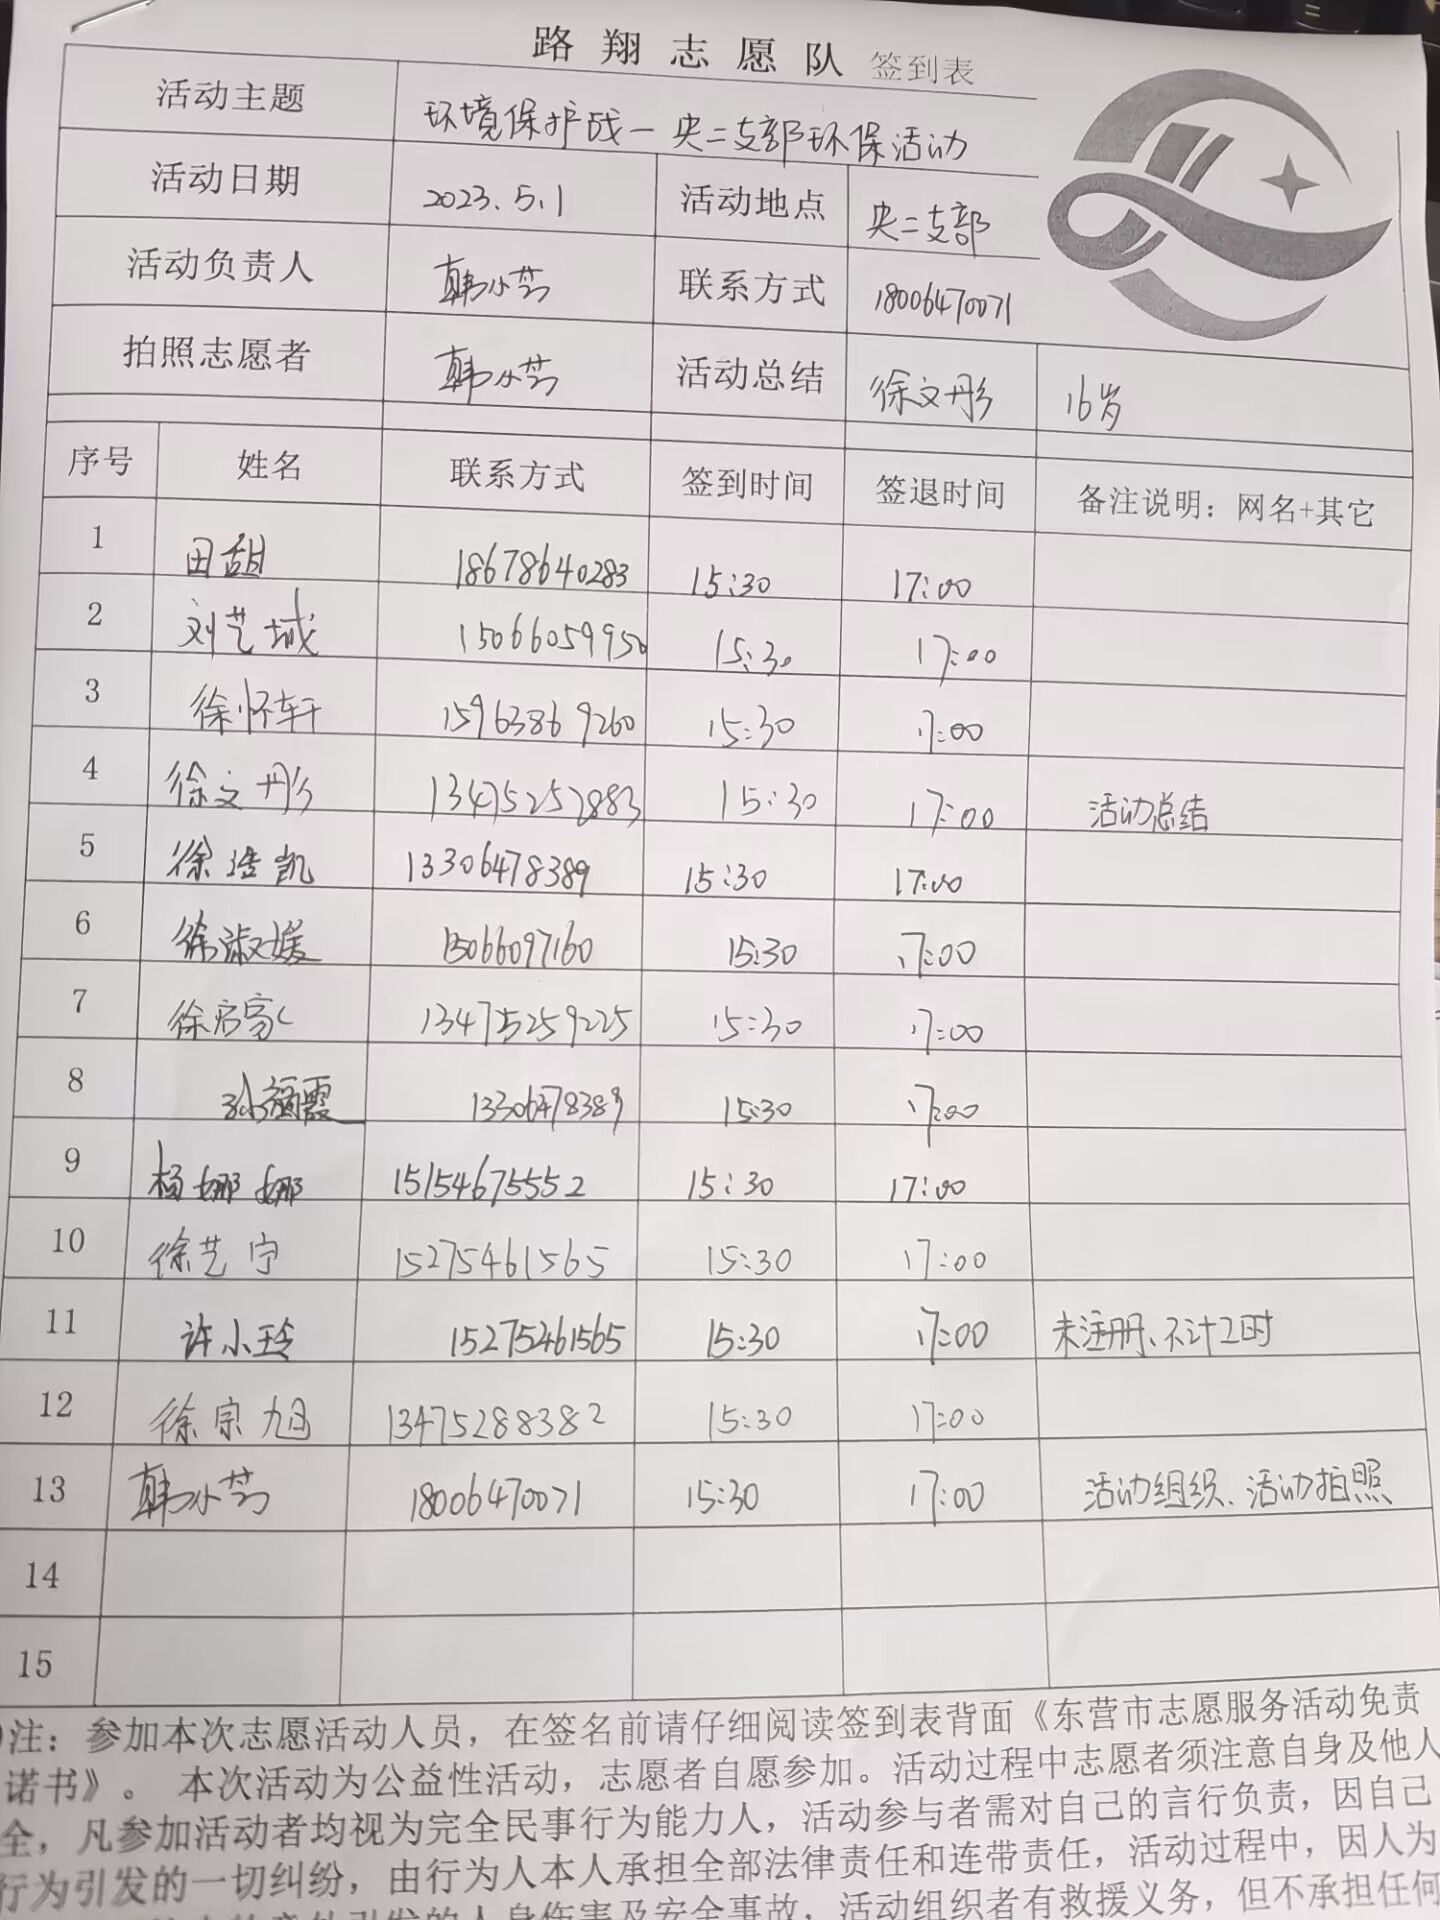 路翔志愿队 签到表
活动主题 环境保护战一央二支部环保活动
活动日期 2023.5.1 活动地点 央二支部
活动负责人 韩小芸 联系方式 18006470071
拍照志愿者 韩小芸 活动总结 徐文彤 16岁
序号 姓名 联系方式 签到时间 签退时间 备注说明：网名+其它
1 田甜 18678640283 15:30 17:00
2 刘艺城 15066059950 15:30 17:00
3 徐怀轩 15963869260 15:30 17:00
4 徐文彤 13475252883 15:30 17:00 活动总结
5 徐浩凯 13306478389 15:30 17:00
6 徐淑媛 15066097160 15:30 17:00
7 13475259225 15:30 17:00
8 13306478389 15:30 17:00
9 杨娜娜 15154675552 15:30 17:00
10 徐艺宁 15275461565 15:30 17:00
11 许小玲 15275461565 15:30 17:00 未注册、不计工时
12 徐宗旭 13475288382 15:30 17:00
13 韩小芸 18006470071 15:30 17:00 活动组织、活动拍照
14
15
注：参加本次志愿活动人员，在签名前请仔细阅读签到表背面《东营市志愿服务活动免责
诺书》。 本次活动为公益性活动，志愿者自愿参加。活动过程中志愿者须注意自身及他人
全，凡参加活动者均视为完全民事行为能力人，活动参与者需对自己的言行负责，因自己
行为引发的一切纠纷，由行为人本人承担全部法律责任和连带责任，活动过程中，因人为
意外引发的人身伤害及安全事故，活动组织者有救援义务，但不承担任何